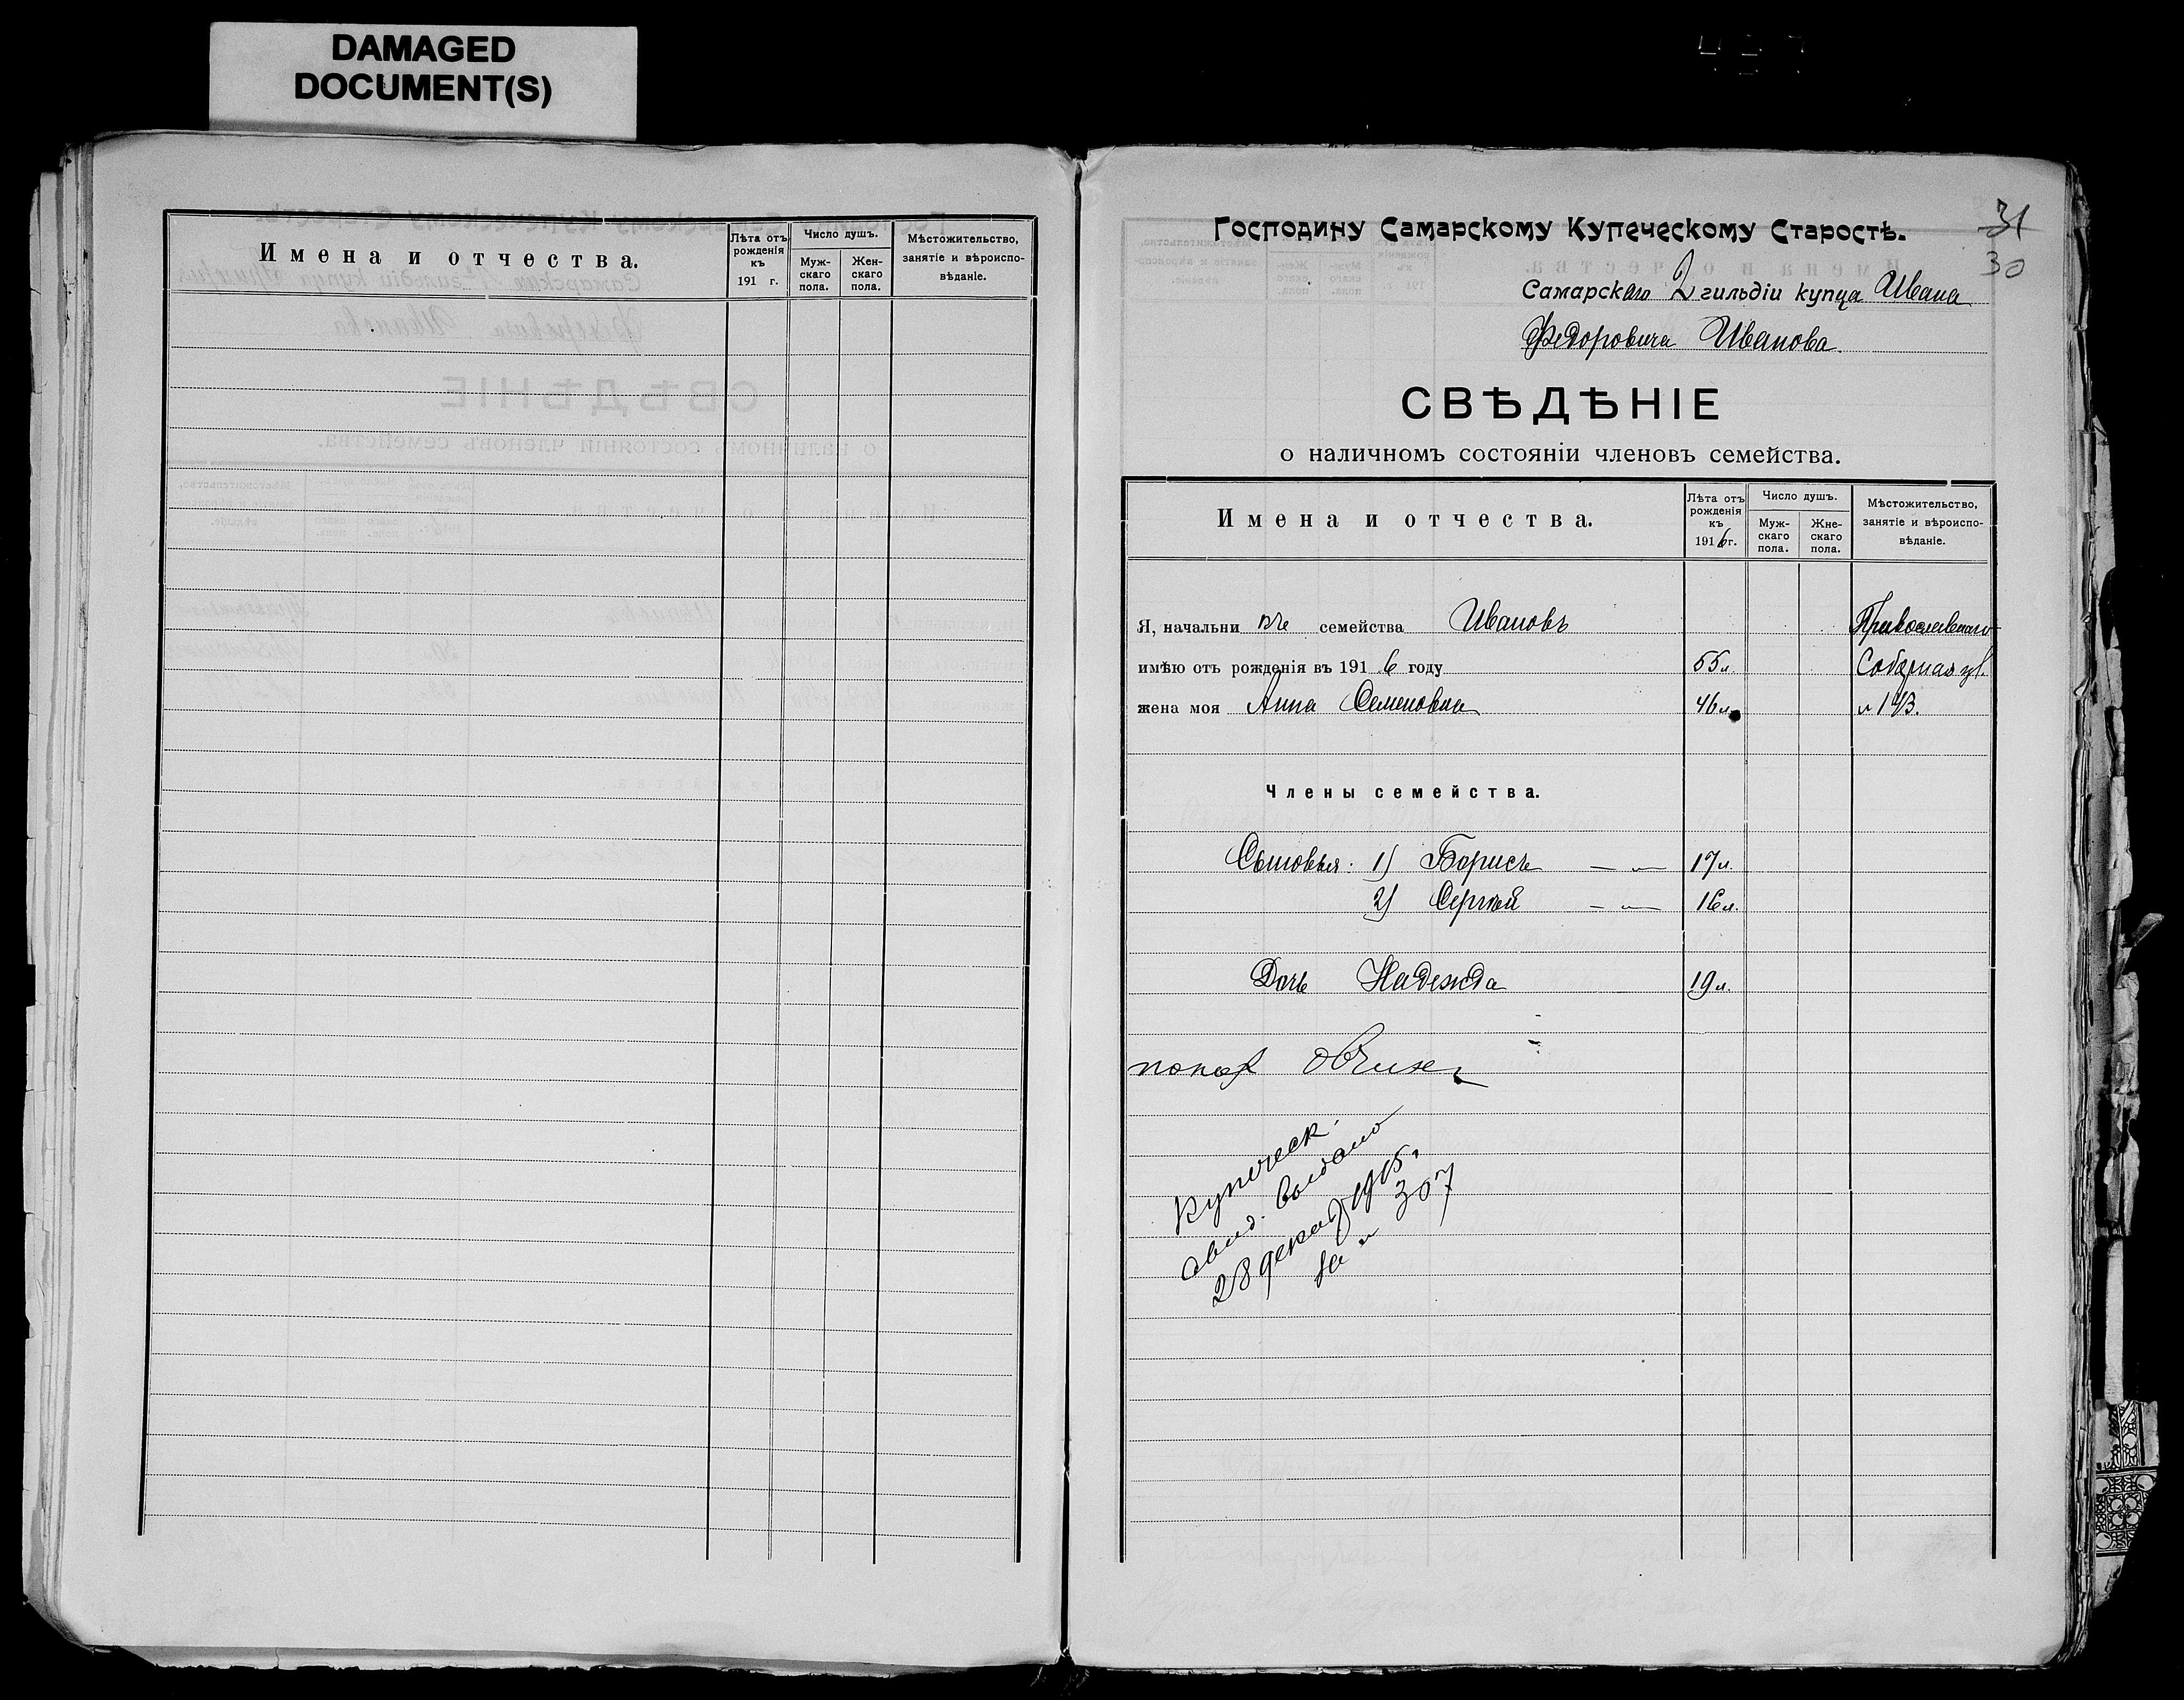 DAMAGED
DOCUMENT(S)
Имена и отчества.
Лѣта отъ рожденія къ 191 г.
Число душъ.
Муж-скаго пола.
Жен-скаго пола.
Мѣстожительство, занятіе и вѣроиспо-вѣданіе.
31
30
Господину Самарскому Купеческому Старостѣ.
Самарскаго 2 гильдіи купца Ивана
Федоровича Иванова.
СВѢДѢНІЕ
о наличномъ состояніи членовъ семейства.
Имена и отчества.
Лѣта отъ рожденія къ 1916 г.
Число душъ.
Муж-скаго пола.
Жне-скаго пола.
Мѣстожительство, занятіе и вѣроиспо-вѣданіе.
Я, начальникъ семейства Ивановъ Православнаго
имѣю отъ рожденія въ 1916 году 55 л. Соборная ул.
жена моя Анна Семеновна 46 л.
Члены семейства.
Сыновья: 1) Борисъ — " — 17 л.
2) Сергѣй — " — 16 л.
Дочь Надежда 19 л.
Купеческ.
свид. выдано
28 декаб 1915 г.
за № 307